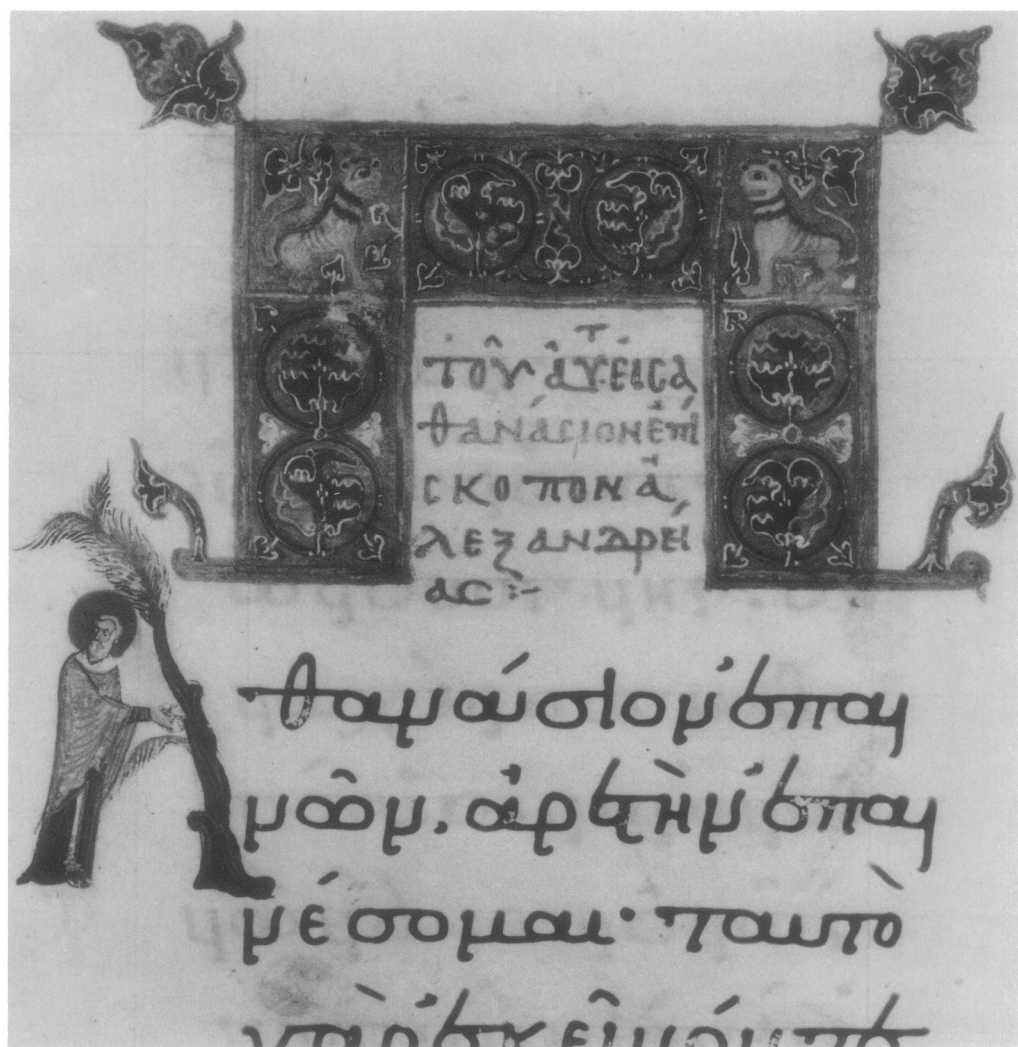 τοῦ ἀυτ· εἰς ἀ
θανάσιον ἐπί
σκοπον ἀ
λεξανδρεί
ας :-
θανάσιον ἐπαι
νῶν, ἀρετὴν ἐπαι
νέσομαι· ταυτὸ
γὰρ ἐκεῖνόν τε